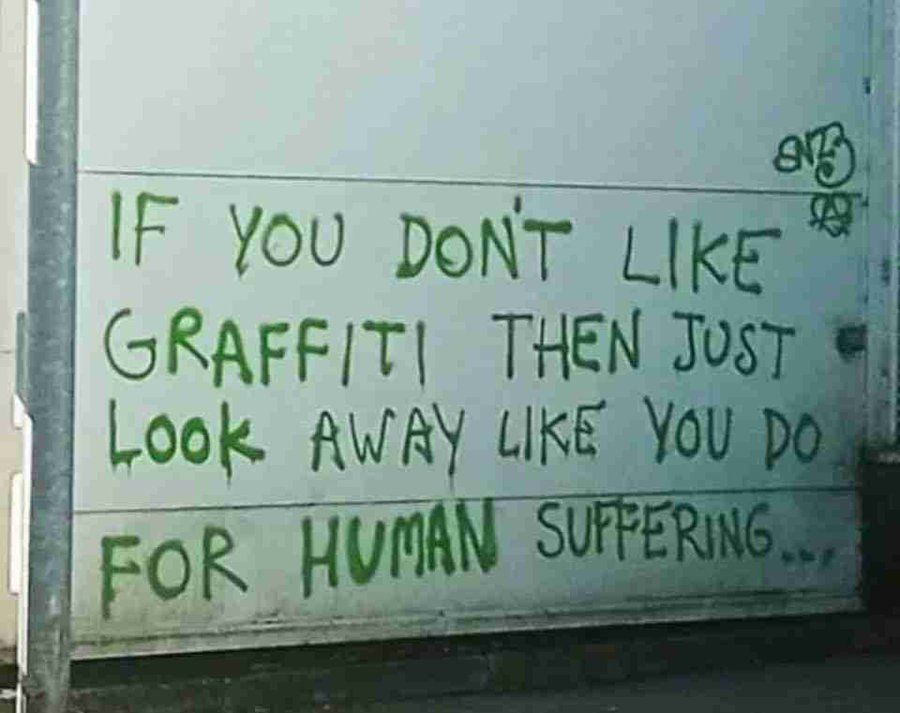 IF YOU DON'T LIKE
GRAFFITI THEN JUST
LOOK AWAY LIKE YOU DO
FOR HUMAN SUFFERING....